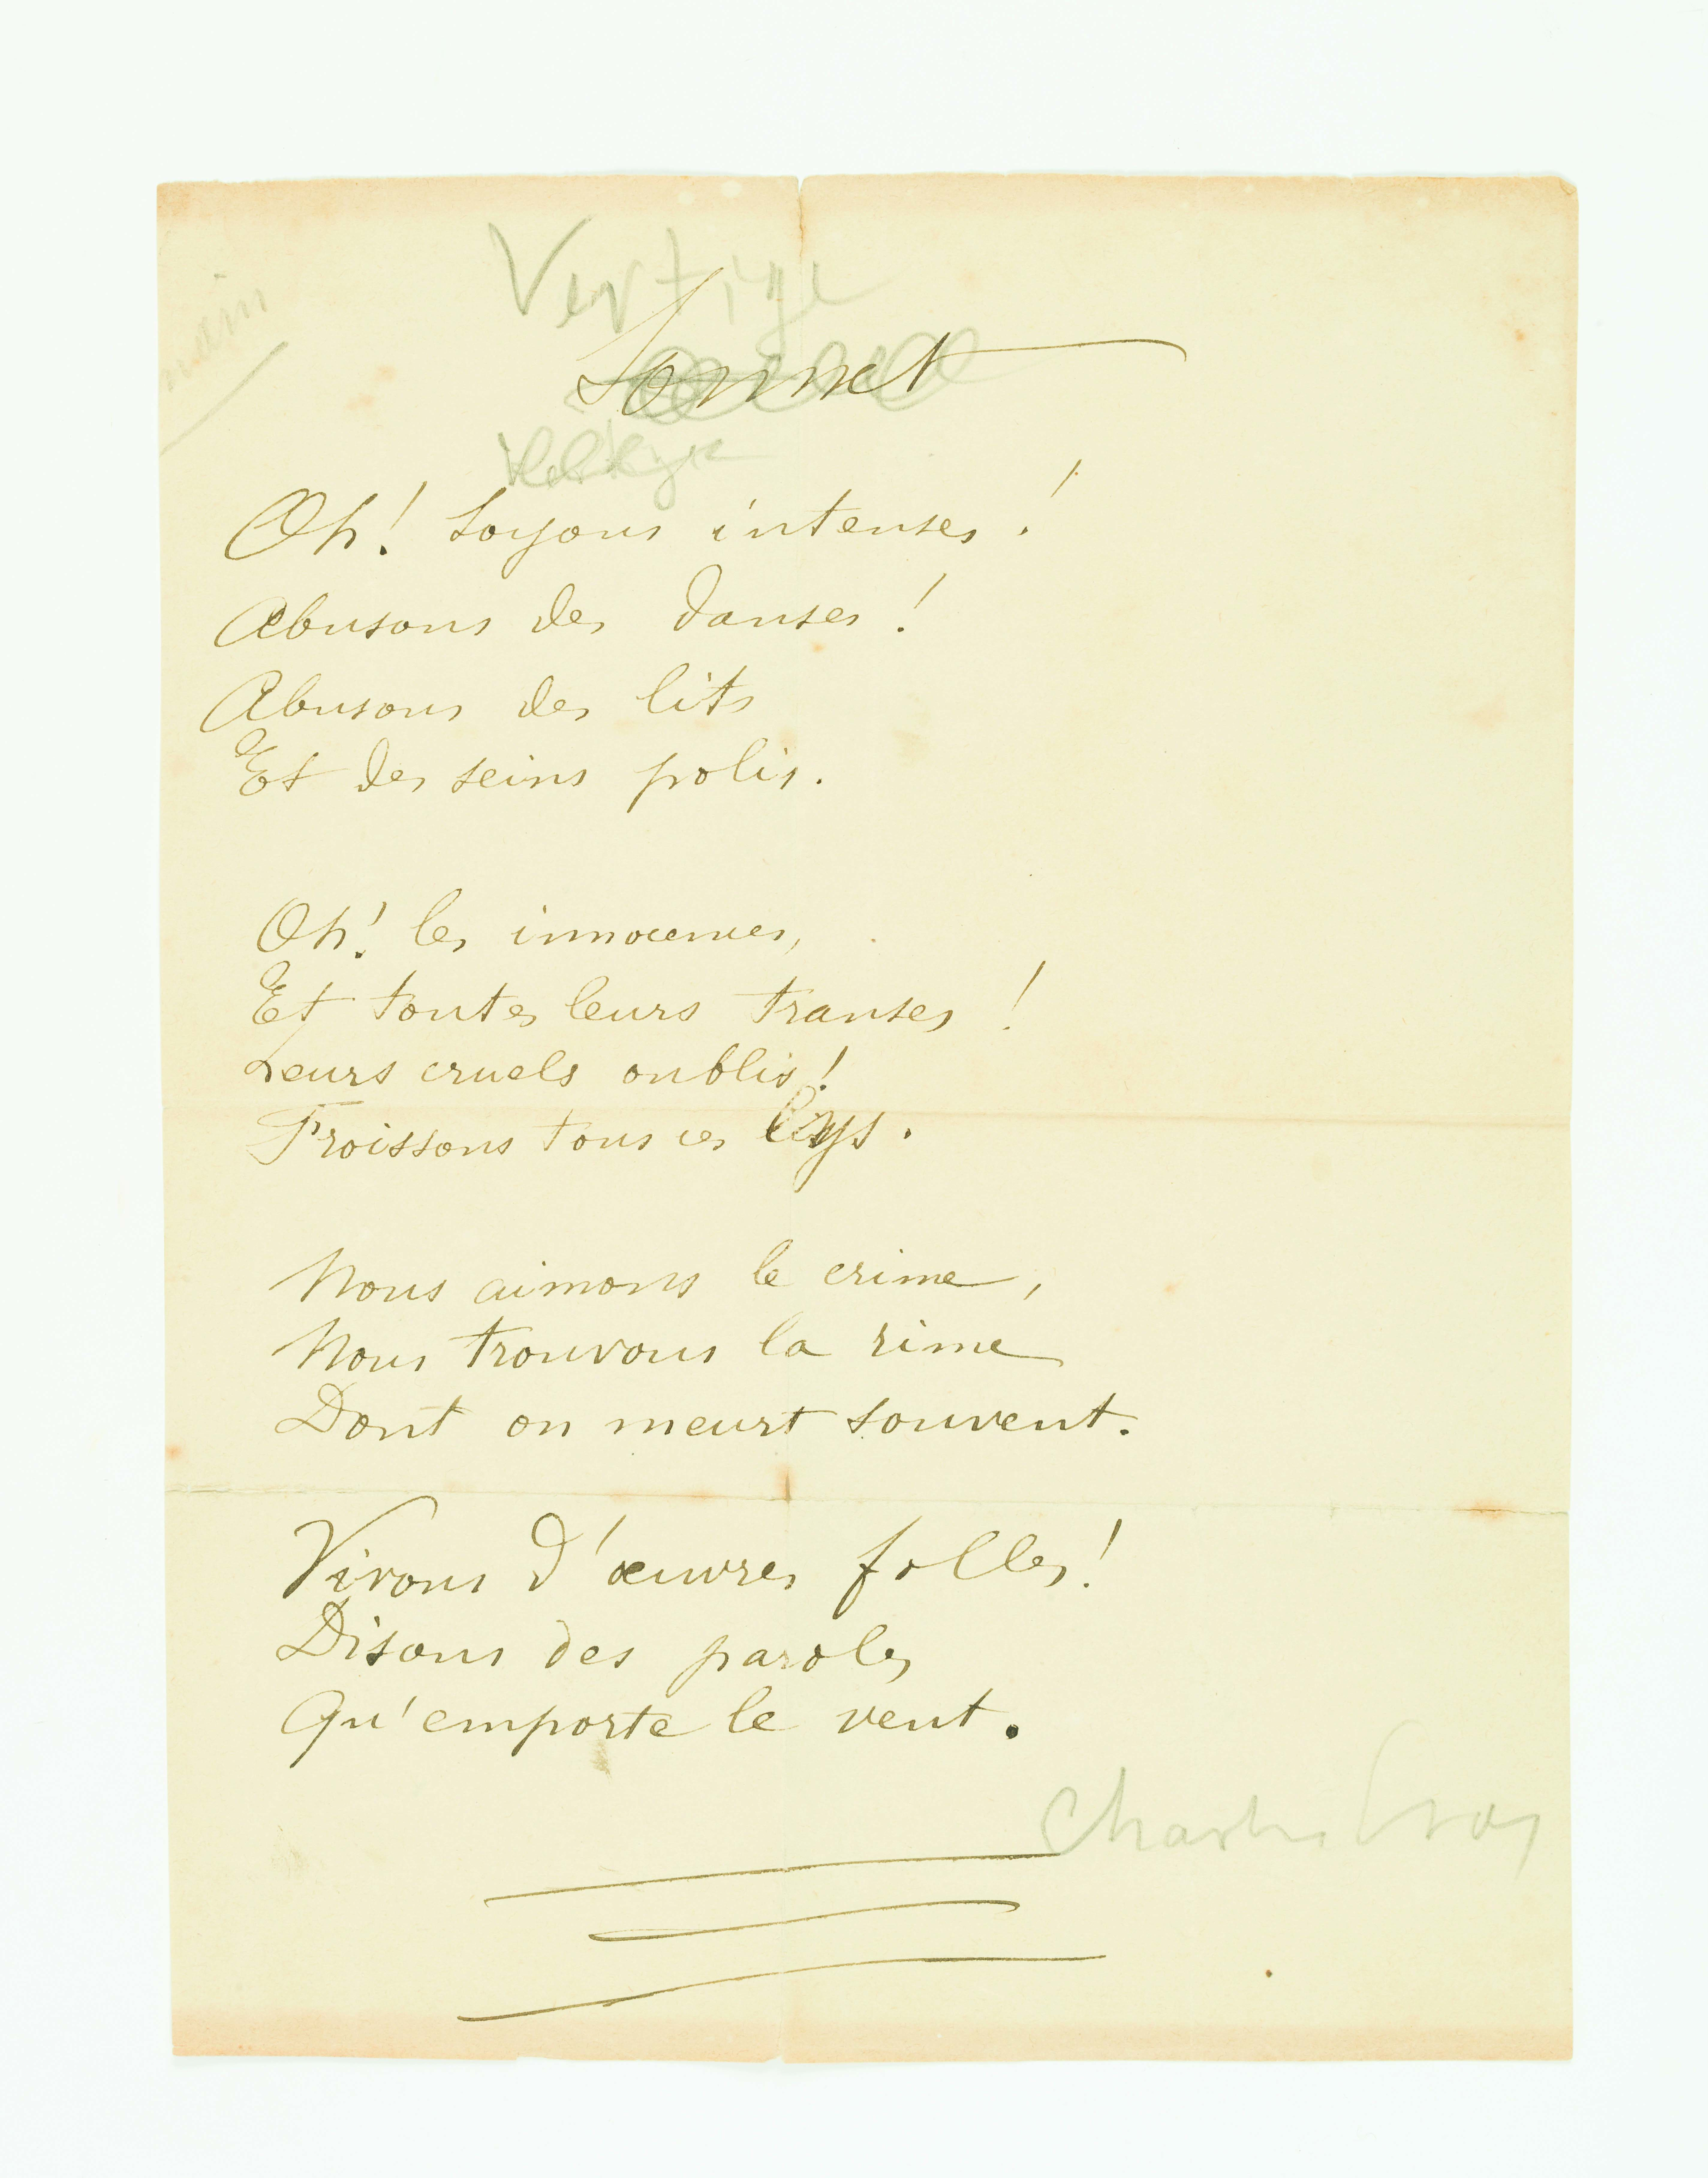 Vertige
Sonnet
Oh! soyons intenses!
Abusons des danses!
Abusons des lits
Et des seins polis.
Oh! les innocences,
Et toutes leurs transes!
Leurs cruels oublis!
Froissons tous ces lys.
Nous aimons le crime,
Nous trouvons la rime
Dont on meurt souvent.
Vivons d'œuvres folles!
Disons des paroles
Qu'emporte le vent.
Charles Cros